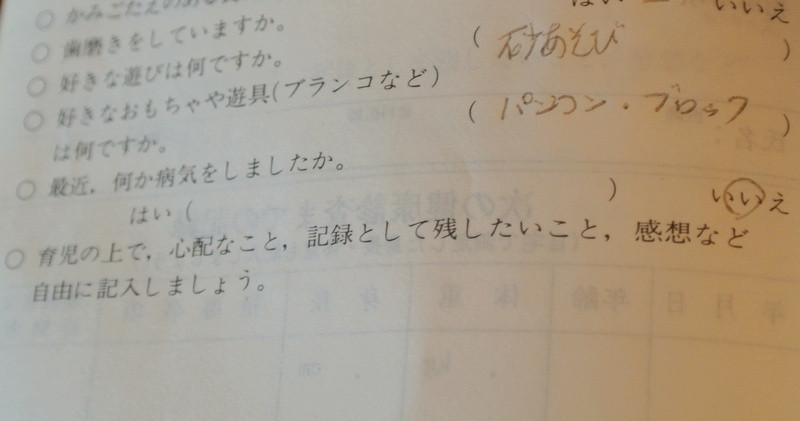 ○ かみごたえのある
はい　いいえ
○ 歯磨きをしていますか。
○ 好きな遊びは何ですか。 ( 砂あそび )
○ 好きなおもちゃや遊具(ブランコなど)
は何ですか。 ( パソコン・ブロック )
○ 最近，何か病気をしましたか。
はい ( ) いいえ
○ 育児の上で，心配なこと，記録として残したいこと，感想など
自由に記入しましょう。